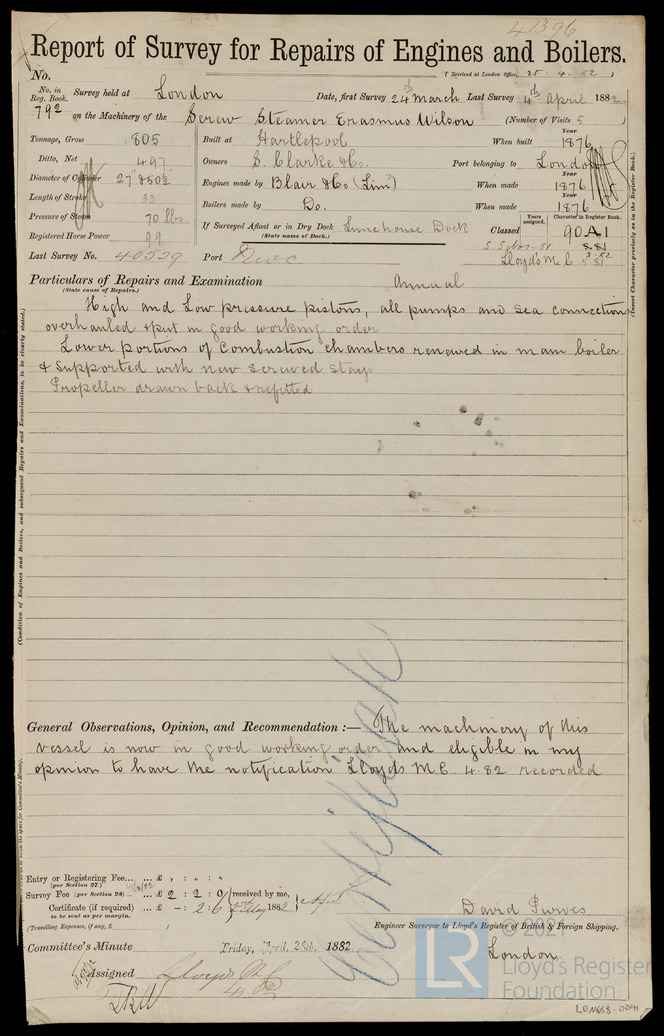 41396
Report of Survey for Repairs of Engines and Boilers.
No. (Received at London Office, 25·4·82)
No. in Reg. Book. Survey held at London Date, first Survey 24th March Last Survey 4th April 1882
792 on the Machinery of the Screw Steamer Erasmus Wilson (Number of Visits 5)
Tonnage, Gross 805 Built at Hartlepool When built Year 1876
Ditto, Net 497 Owners S. Clarke & Co. Port belonging to London
Diameter of Cylinder 27" & 50½ Engines made by Blair & Co (Limd) When made Year 1876
Length of Stroke 33 Boilers made by Do. When made Year 1876
Pressure of Steam 70 lbs If Surveyed Afloat or in Dry Dock Limehouse Dock Classed Years assigned. Character in Register Book. 90A1
Registered Horse Power 99 (State name of Dock.)
Last Survey No. 40529 Port Lloyd's M.C.
Particulars of Repairs and Examination Annual
(State cause of Repairs.)
High and Low pressure pistons, all pumps and sea connections
overhauled & put in good working order
Lower portions of Combustion chambers renewed in main boiler
& supported with new screwed stays
Propeller drawn back & refitted
(Condition of Engines and Boilers, and subsequent Repairs and Examinations, to be clearly stated.)
(Insert Character precisely as in the Register Book.)
General Observations, Opinion, and Recommendation :— The machinery of this
vessel is now in good working order and eligible in my
opinion to have the notification Lloyds M.C. 4·82 recorded
Entry or Registering Fee... ... £ , : „ : „
(per Section 27.)
Survey Fee (per Section 28) ... £ 2 : 2 : 0 received by me,
Certificate (if required) ... £ – : 2 : 6 1882
to be sent as per margin.
(Travelling Expenses, if any, £ )
David Purves
Engineer Surveyor to Lloyd's Register of British & Foreign Shipping.
London.
Committee's Minute Friday, April 28th, 1882
Assigned Lloyd's M.C.
4.82
© 2021
LR
Lloyd's Register
Foundation
LON668-0091